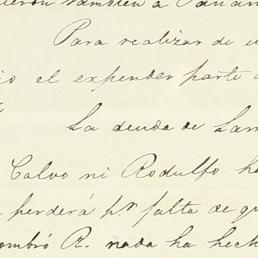 también a Pana
Para realizar de
el expender parte
La deuda de Lam
Calvo ni Rodulfo ha
perderá pr. falta de qu
nombró R. nada ha hech